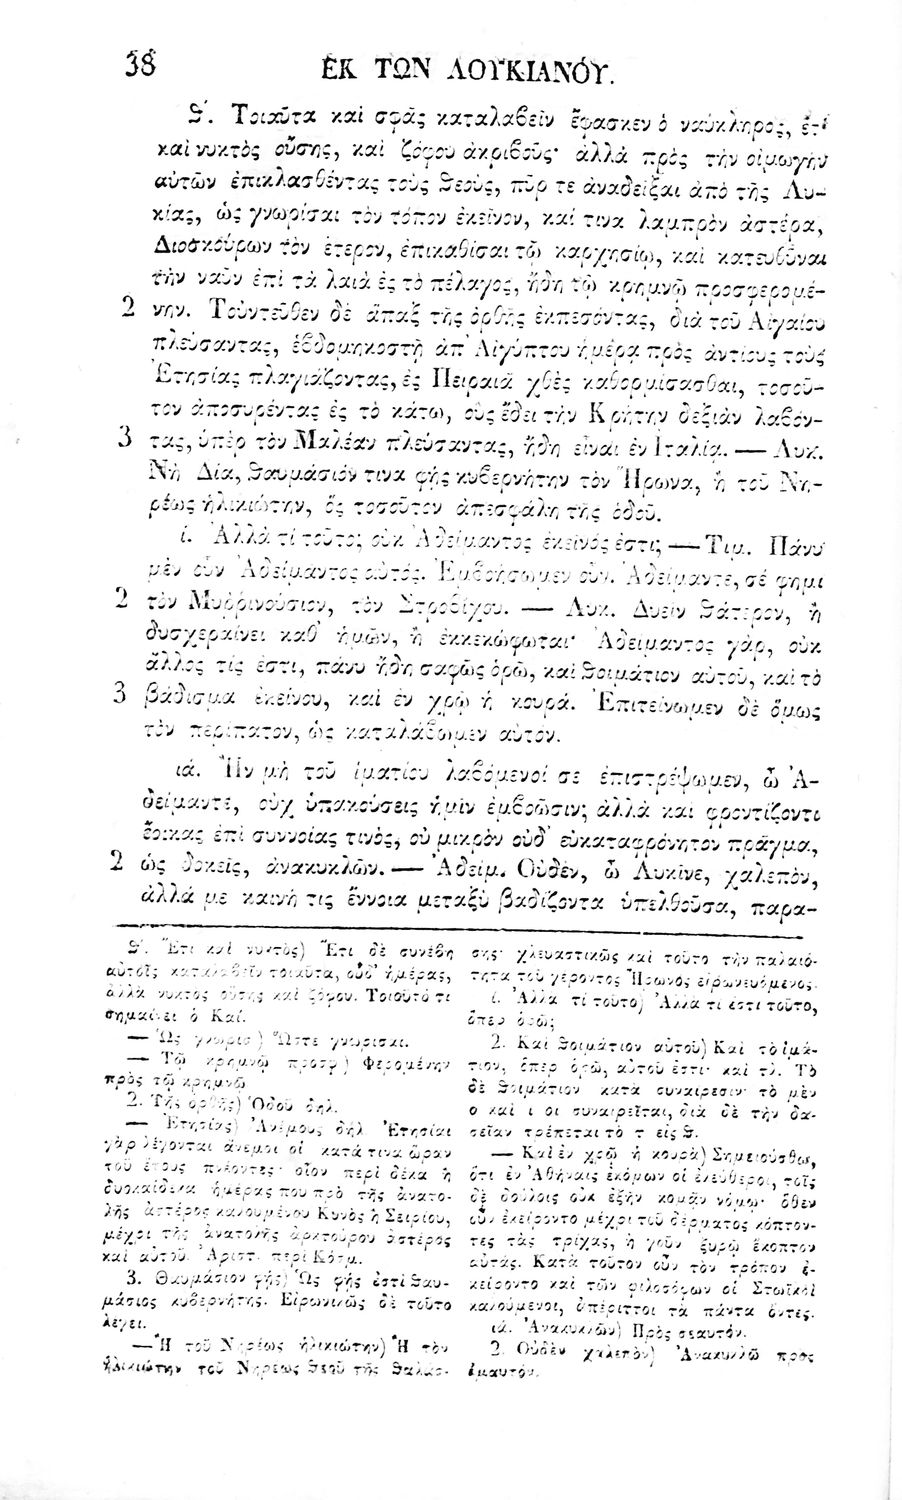 38
ἘΚ ΤΩΝ ΛΟΥΚΙΑΝΟΎ.
Θ'. Τοιαῦτα καὶ σφᾶς καταλαβεῖν ἔφασκεν ὁ ναύκληρος, ἔτι
καὶ νυκτὸς οὔσης, καὶ ζόφου ἀκριβοῦς· ἀλλὰ πρὸς τὴν οἰμωγὴν
αὐτῶν ἐπικλασθέντας τοὺς θεοὺς, πῦρ τε ἀναδεῖξαι ἀπὸ τῆς Λυ-
κίας, ὡς γνωρίσαι τὸν τόπον ἐκεῖνον, καί τινα λαμπρὸν ἀστέρα,
Διοσκούρων τὸν ἕτερον, ἐπικαθίσαι τῷ καρχησίῳ, καὶ κατευθῦναι
τὴν ναῦν ἐπὶ τὰ λαιὰ ἐς τὸ πέλαγος, ἤδη τῷ κρημνῷ προσφερομέ-
2 νην. Τοὐντεῦθεν δὲ ἅπαξ τῆς ὀρθῆς ἐκπεσόντας, διὰ τοῦ Αἰγαίου
πλεύσαντας, ἑβδομηκοστῇ ἀπ' Αἰγύπτου ἡμέρᾳ πρὸς ἀντίους τοὺς
Ἐτησίας πλαγιάζοντας, ἐς Πειραιᾶ χθὲς καθορμίσασθαι, τοσοῦ-
τον ἀποσυρέντας ἐς τὸ κάτω, οὓς ἔδει τὴν Κρήτην δεξιὰν λαβόν-
3 τας, ὑπὲρ τὸν Μαλέαν πλεύσαντας, ἤδη εἶναι ἐν Ἰταλίᾳ. — Λυκ.
Νὴ Δία, θαυμάσιόν τινα φῂς κυβερνήτην τὸν Ἥρωνα, ἢ τοῦ Νη-
ρέως ἡλικιώτην, ὃς τοσοῦτον ἀπεσφάλη τῆς ὁδοῦ.
ί. Ἀλλὰ τί τοῦτο; οὐκ Ἀδείμαντος ἐκεῖνός ἐστι; — Τιμ. Πάνυ
μὲν οὖν Ἀδείμαντος αὐτός. Ἐμβοήσωμεν οὖν. Ἀδείμαντε, σέ φημι
2 τὸν Μυῤῥινούσιον, τὸν Στροβίχου. — Λυκ. Δυεῖν θάτερον, ἢ
δυσχεραίνει καθ' ἡμῶν, ἢ ἐκκεκώφωται· Ἀδείμαντος γὰρ, οὐκ
ἄλλος τίς ἐστι, πάνυ ἤδη σαφῶς ὁρῶ, καὶ θοιμάτιον αὐτοῦ, καὶ τὸ
3 βάδισμα ἐκείνου, καὶ ἐν χρῷ ἡ κουρά. Ἐπιτείνωμεν δὲ ὅμως
τὸν περίπατον, ὡς καταλάβωμεν αὐτόν.
ιά. Ἢν μὴ τοῦ ἱματίου λαβόμενοί σε ἐπιστρέψωμεν, ὦ Ἀ-
δείμαντε, οὐχ ὑπακούσεις ἡμῖν ἐμβοῶσιν; ἀλλὰ καὶ φροντίζοντι
ἔοικας ἐπὶ συννοίας τινὸς, οὐ μικρὸν οὐδ' εὐκαταφρόνητον πρᾶγμα,
2 ὡς δοκεῖς, ἀνακυκλῶν. — Ἀδείμ. Οὐδὲν, ὦ Λυκῖνε, χαλεπὸν,
ἀλλά με καινή τις ἔννοια μεταξὺ βαδίζοντα ὑπελθοῦσα, παρα-
Θ'. Ἔτι καὶ νυκτὸς) Ἔτι δὲ συνέβη
αὐτοῖς καταλαβεῖν τοιαῦτα, οὐδ' ἡμέρας,
ἀλλὰ νυκτὸς οὔσης καὶ ζόφου. Τοιοῦτό τι
σημαίνει ὁ Καί.
— Ὡς γνωρίσ) Ὥστε γνωρισαι.
— Τῷ κρημνῷ προσφ) Φερομένην
πρὸς τῷ κρημνῷ
2. Τῆς ὀρθῆς) Ὁδοῦ δηλ.
— Ἐτησίας) Ἀνέμους δηλ Ἐτησίαι
γὰρ λέγονται ἄνεμοι οἱ κατά τινα ὥραν
τοῦ ἔτους πνέοντες· οἷον περὶ δέκα ἢ
δυοκαίδεκα ἡμέρας που πρὸ τῆς ἀνατο-
λῆς ἀστέρος καλουμένου Κυνὸς ἢ Σειρίου,
μέχρι τῆς ἀνατολῆς ἀρκτούρου ἀστέρος
καὶ αὐτοῦ. Ἀριστ. περὶ Κόσμ.
3. Θαυμάσιον φῄς) Ὡς φῄς ἐστὶ θαυ-
μάσιος κυβερνήτης. Εἰρωνικῶς δὲ τοῦτο
λέγει.
— Ἢ τοῦ Νηρέως ἡλικιώτην) Ἢ τὸν
ἡλικιώτην τοῦ Νηρέως θεοῦ τῆς θαλάσ-
σης· χλευαστικῶς καὶ τοῦτο τὴν παλαιό-
τητα τοῦ γέροντος Ἥρωνος εἰρωνευόμενος.
ί. Ἀλλὰ τί τοῦτο) Ἀλλὰ τί ἐστι τοῦτο,
ὅπερ ὁρῶ;
2. Καὶ θοιμάτιον αὐτοῦ) Καὶ τὸ ἱμά-
τιον, ὅπερ ὁρῶ, αὐτοῦ ἐστι· καὶ τλ. Τὸ
δὲ θοιμάτιον κατὰ συναιρεσιν· τὸ μὲν
ο καὶ ι οι συναιρεῖται, διὰ δὲ τὴν δα-
σεῖαν τρέπεται τὸ τ εἰς θ.
— Καὶ ἐν χρῷ ἡ κουρὰ) Σημειούσθω,
ὅτι ἐν Ἀθήναις ἐκόμων οἱ ἐλεύθεροι, τοῖς
δὲ δούλοις οὐκ ἐξῆν κομᾶν νόμῳ· ὅθεν
οὖν ἐκείροντο μέχρι τοῦ δέρματος κόπτον-
τες τὰς τρίχας, ἢ γοῦν ξυρῷ ἔκοπτον
αὐτάς. Κατὰ τοῦτον οὖν τὸν τρόπον ἐ-
κείροντο καὶ τῶν φιλοσόφων οἱ Στωϊκοὶ
καλούμενοι, ἀπέριττοι τὰ πάντα ὄντες.
ιά. Ἀνακυκλῶν) Πρὸς σεαυτόν.
2. Οὐδὲν χαλεπὸν) Ἀνακυκλῶ πρὸς
ἐμαυτόν.